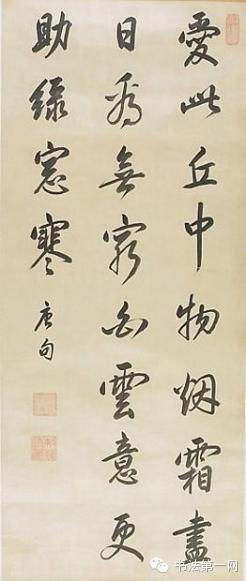 愛此丘中物烟霜盡
日看無窮白雲意更
助綠窓寒
唐句
书法第一网